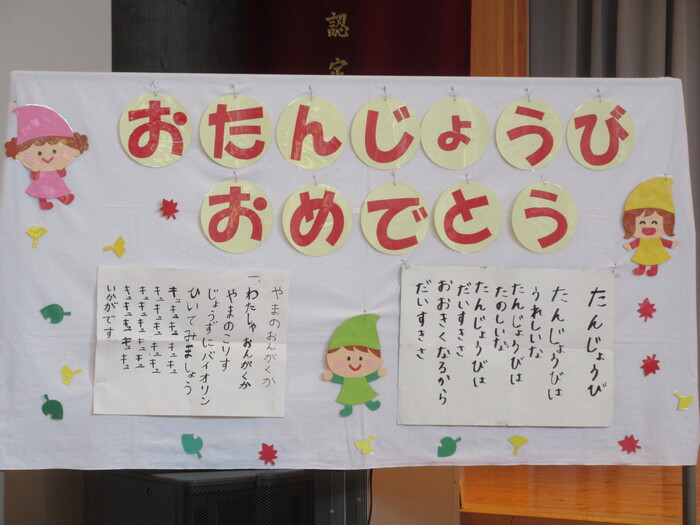 認定
おたんじょうび
おめでとう
やまのおんがくか
一、わたしゃ おんがくか
やまのこりす
じょうずにバイオリン
ひいてみましょう
キュキュ キュ キュ キュ
キュキュ キュ キュ キュ
キュキュ キュ キュ キュ
キュキュ キュ キュ キュ
いかがです
たんじょうび
たんじょうびは
うれしいな
たんじょうびは
たのしいな
たんじょうびは
だいすきさ
おおきくなるから
だいすきさ